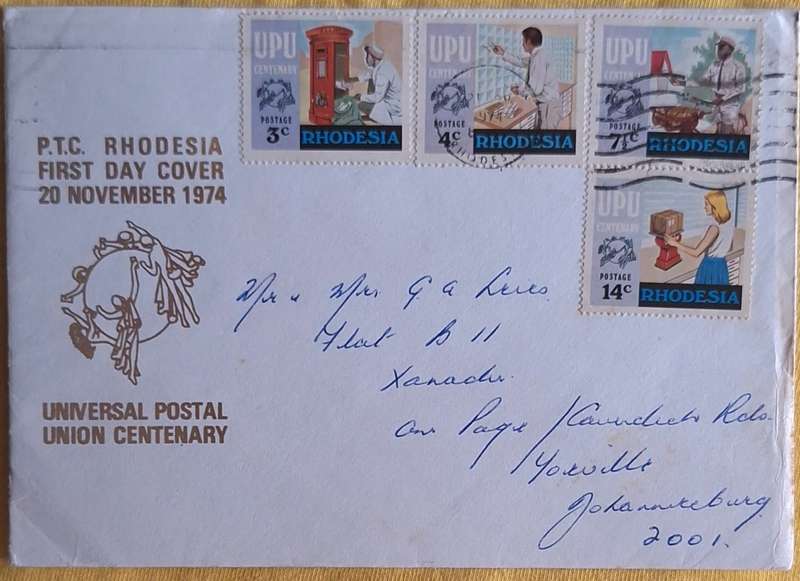 UPU
CENTENARY
POSTAGE
3c
RHODESIA
UPU
CENTENARY
POSTAGE
4c
RHODESIA
UPU
CENTENARY
POSTAGE
7½c
RHODESIA
UPU
CENTENARY
POSTAGE
14c
RHODESIA
P.T.C. RHODESIA
FIRST DAY COVER
20 NOVEMBER 1974
UNIVERSAL POSTAL
UNION CENTENARY
Mr & Mrs G A
Flat B 11
Xanadu.
Cnr Page / Cavendish Rds.
Yeoville
Johannesburg
2001.